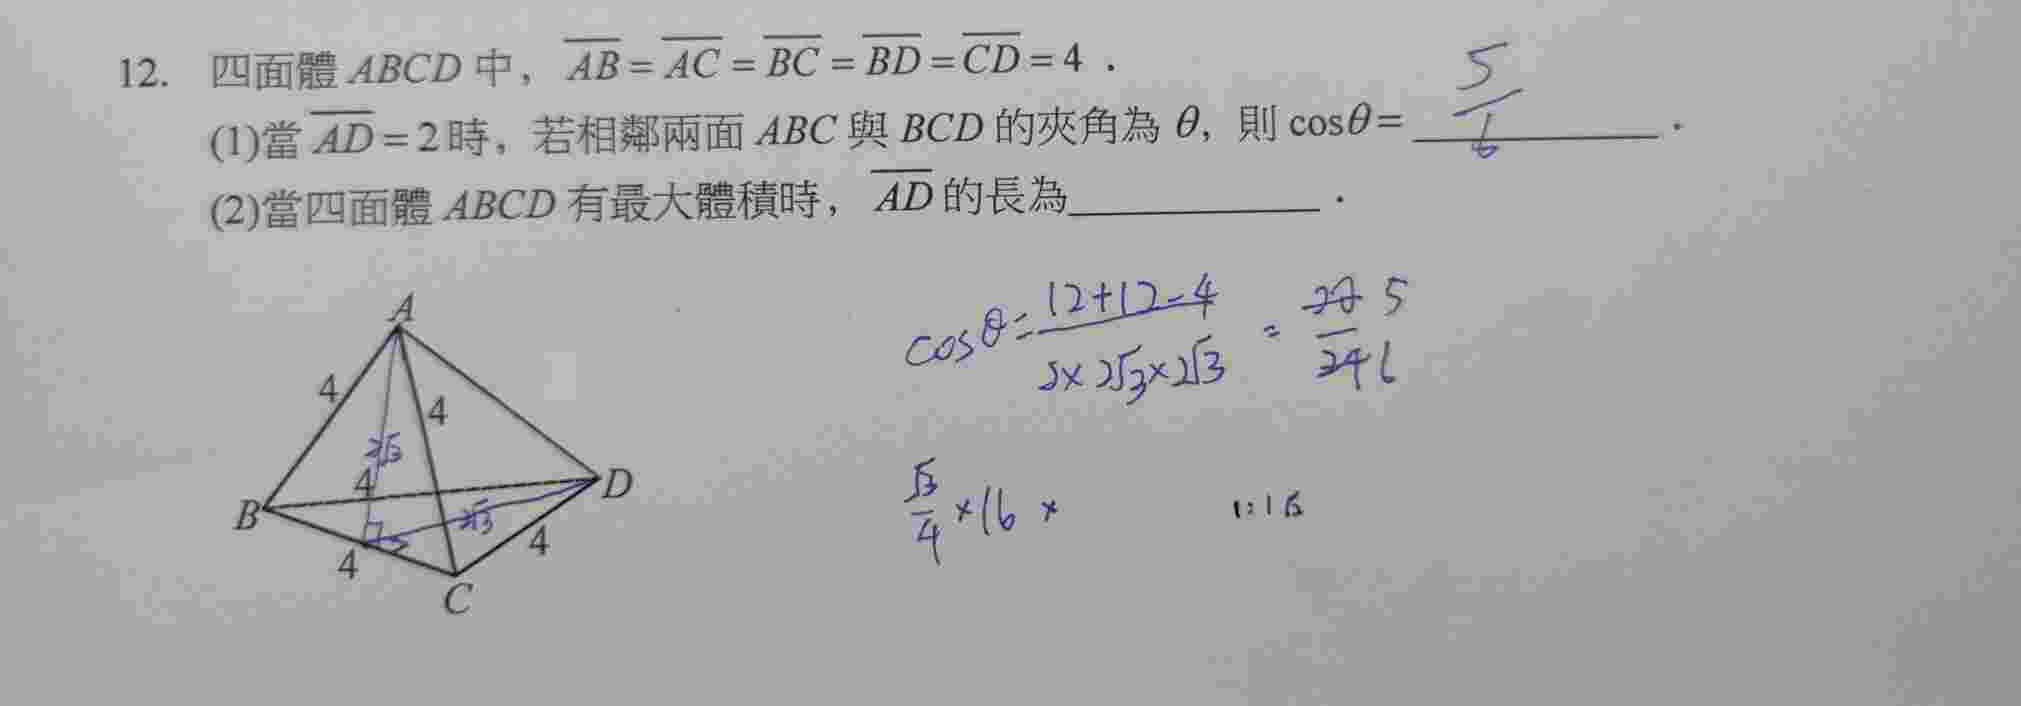 12. 四面體 ABCD 中，AB = AC = BC = BD = CD = 4．
(1)當 AD = 2 時，若相鄰兩面 ABC 與 BCD 的夾角為 θ，則 cosθ = 5/6．
(2)當四面體 ABCD 有最大體積時，AD 的長為______．
A
4
4
2√3
4
B
D
2√3
4
4
C
cosθ = (12+12-4)/(2×2√3×2√3) = 20/24 5/6
√3/4 ×16 ×
1:1:√2